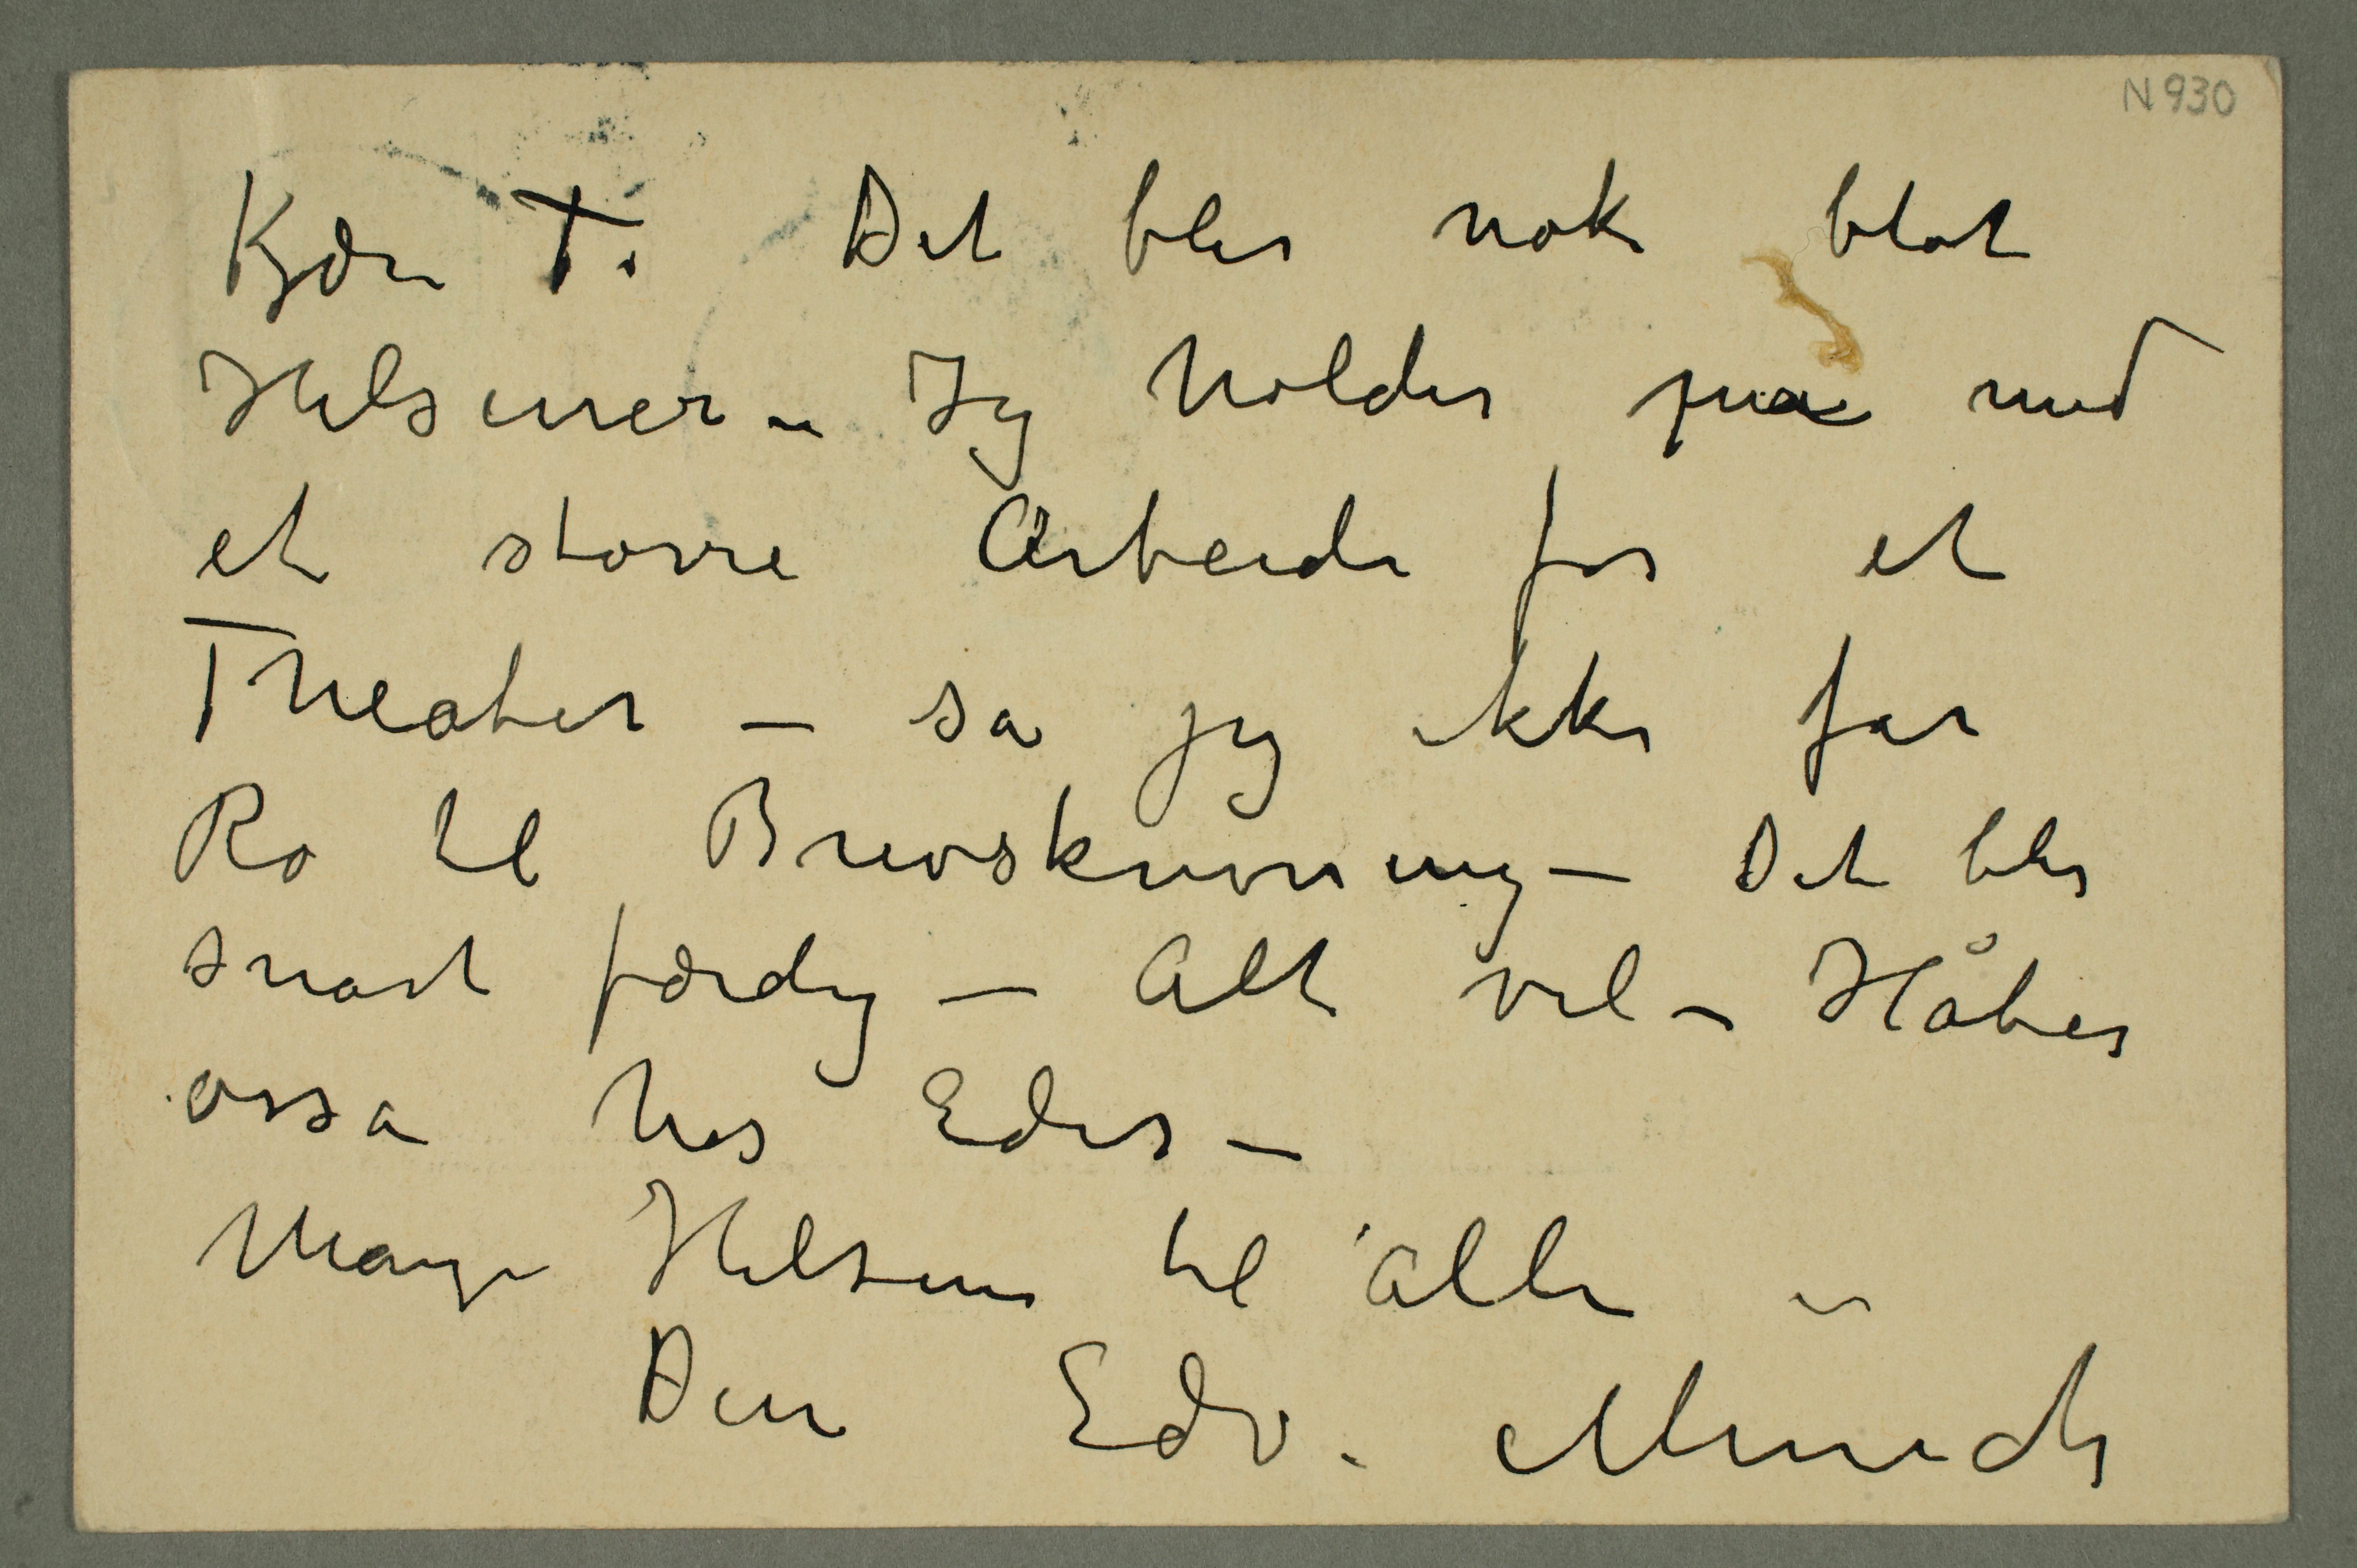 N 930
Kjære T. Det blir nok blot
Hilsener – Jeg holder paa med
et større Arbeide for et
Theater – så jeg ikke får
Ro til Brevskrivning – Det blir
snart færdig – Alt vel – Håber
osså hos Eder –
Mange Hilsener til alle –
Din Edv. Munch